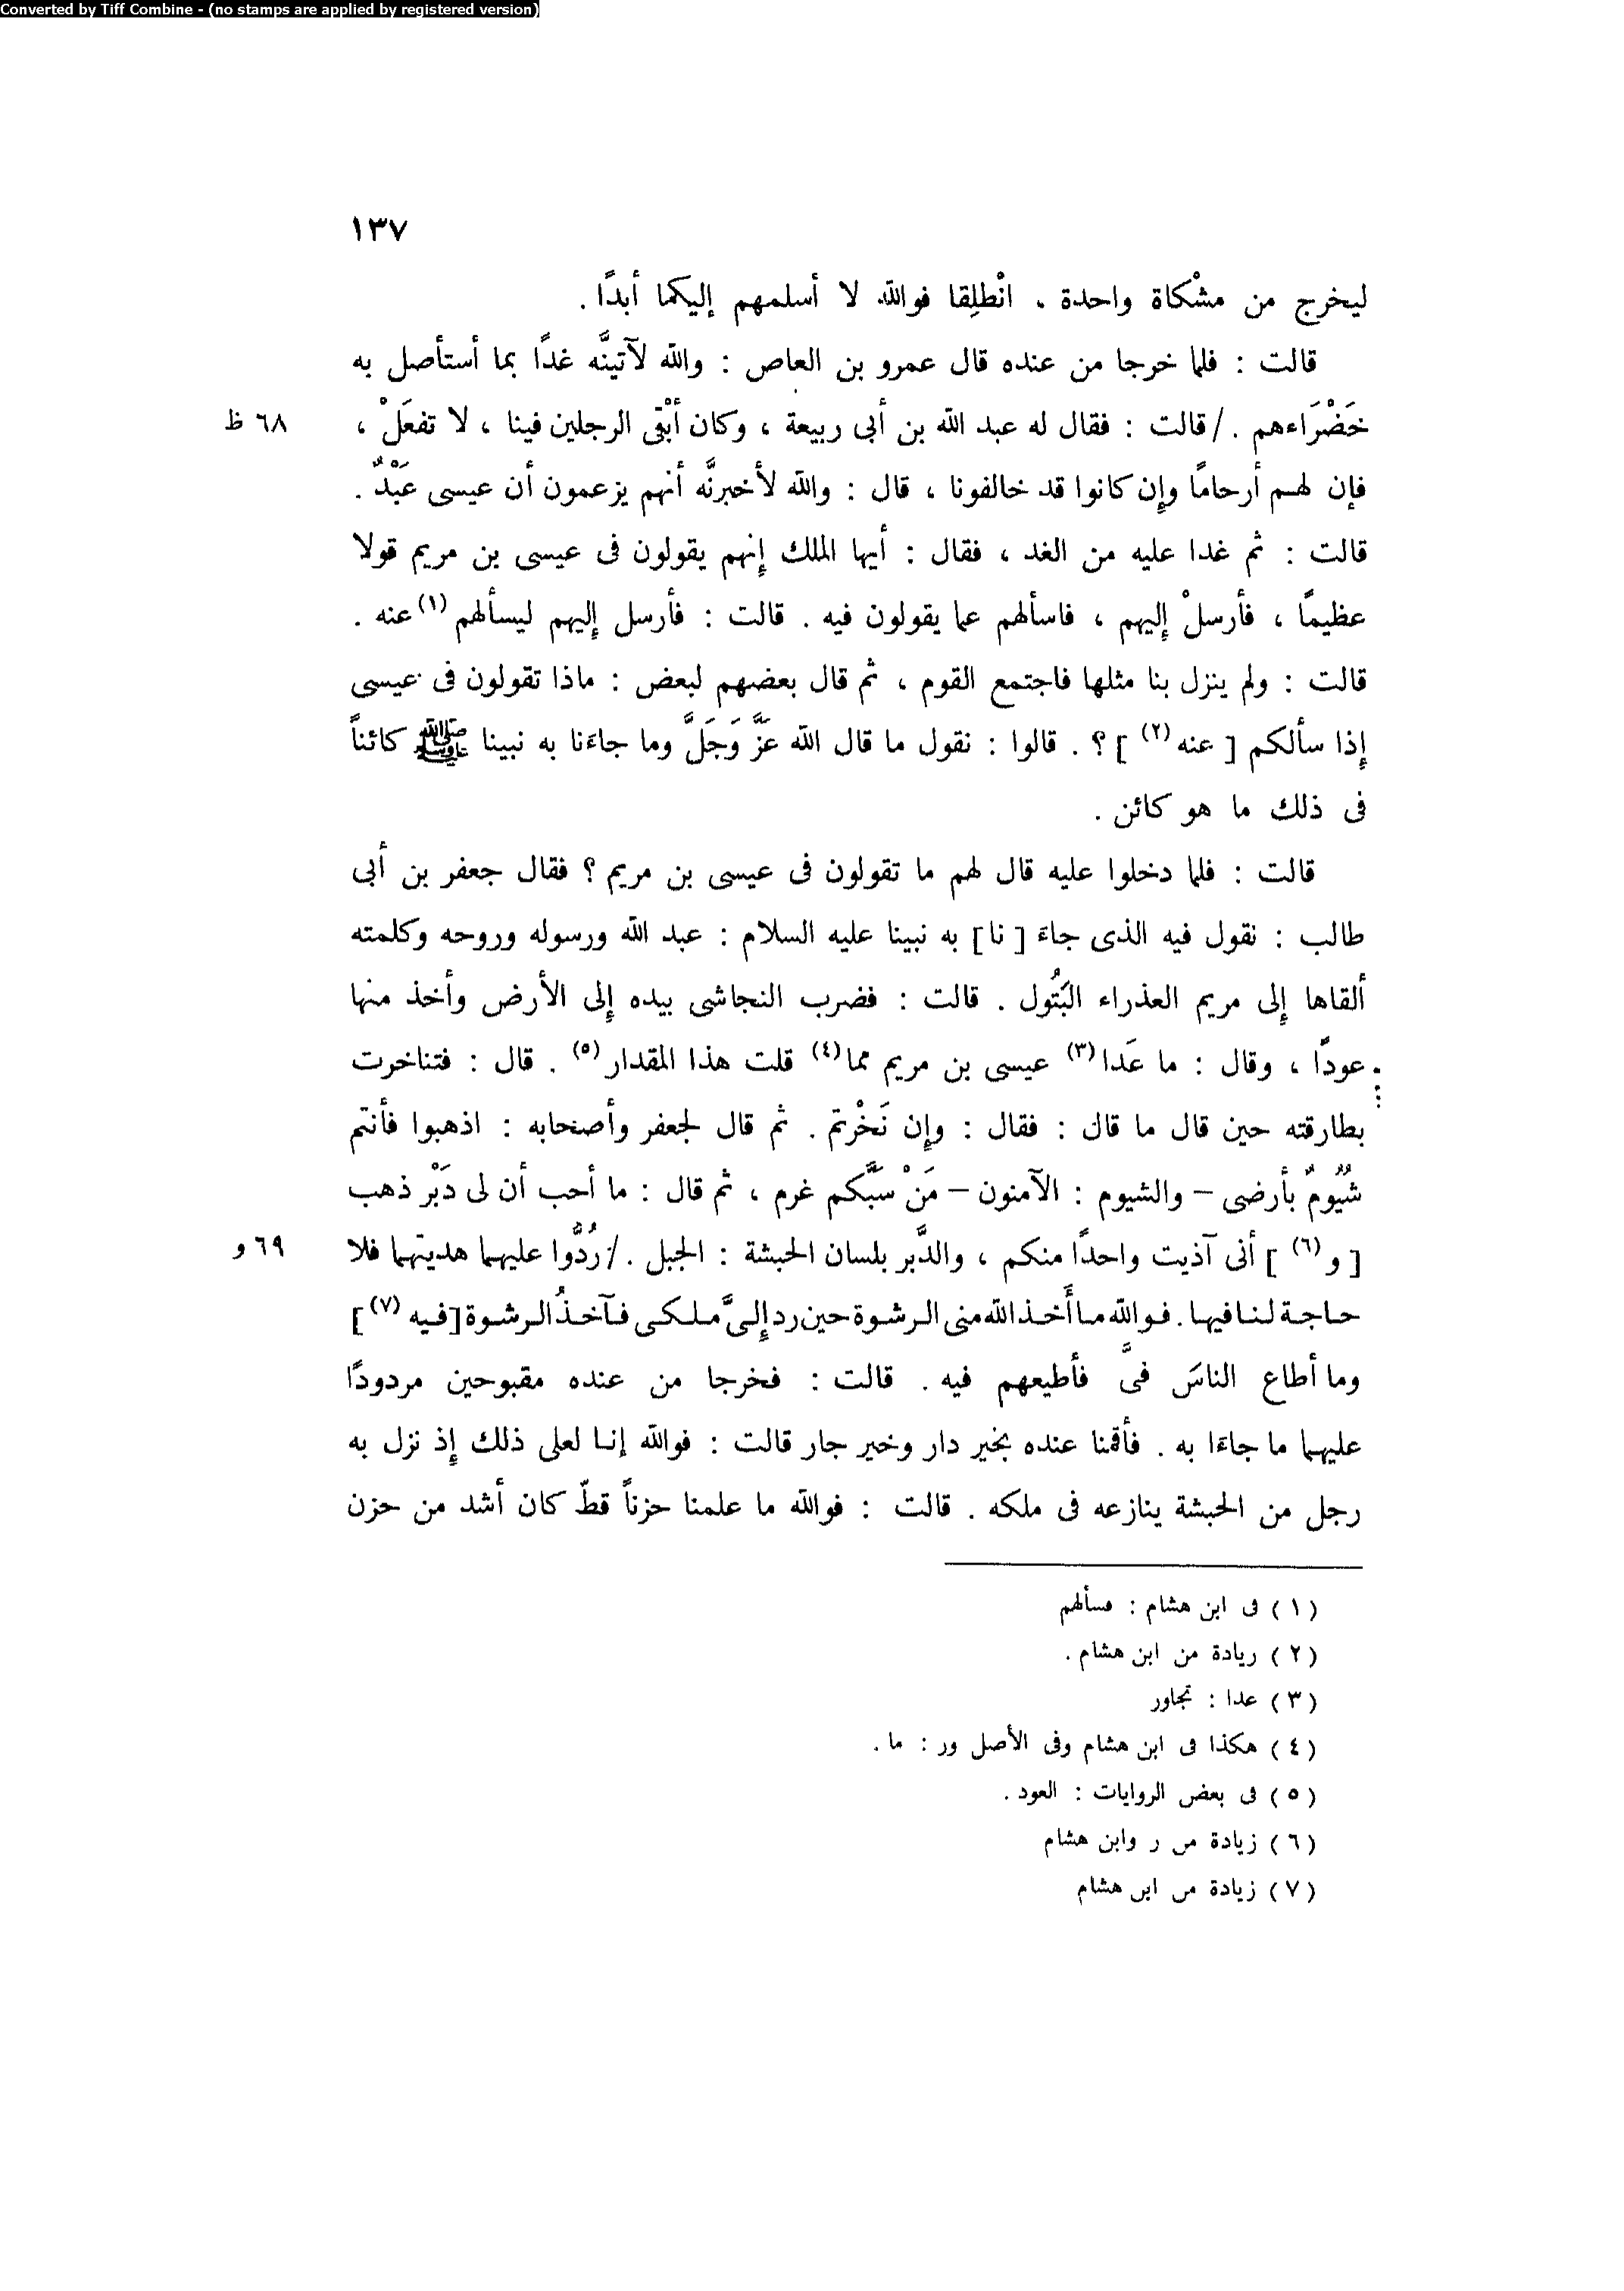 Converted by Tiff Combine - (no stamps are applied by registered version)
١٣٧
ليخرج من مشْكاة واحدة ، انْطلِقا فوالله لا أسلمهم إليكما أبدًا .
قالت : فلما خرجا من عنده قال عمرو بن العاص : والله لآتينَّه غدًا بما أستأصل به
خَضْرَاءهم . / قالت : فقال له عبد الله بن أبى ربيعة ، وكان أَبْقى الرجلين فينا ، لا تفعَلْ ، ٦٨ ظ
فإن لهم أرحاماً وإن كانوا قد خالفونا ، قال : والله لأخبرنَّه أنهم يزعمون أن عيسى عَبْدٌ .
قالت : ثم غدا عليه من الغد ، فقال : أيها الملك إنهم يقولون فى عيسى بن مريم قولا
عظيمًا ، فأرسلْ إليهم ، فاسألهم عما يقولون فيه . قالت : فأرسل إليهم ليسألهم (١) عنه .
قالت : ولم ينزل بنا مثلها فاجتمع القوم ، ثم قال بعضهم لبعض : ماذا تقولون فى عيسى
إذا سألكم [ عنه (٢) ] ؟ . قالوا : نقول ما قال الله عَزَّ وَجَلَّ وما جاءَنا به نبينا ﷺ كائناً
فى ذلك ما هو كائن .
قالت : فلما دخلوا عليه قال لهم ما تقولون فى عيسى بن مريم ؟ فقال جعفر بن أبى
طالب : نقول فيه الذى جاءَ [ نا ] به نبينا عليه السلام : عبد الله ورسوله وروحه وكلمته
ألقاها إلى مريم العذراء البَتُول . قالت : فضرب النجاشى بيده إلى الأرض وأخذ منها
عودًا ، وقال : ما عَدا (٣) عيسى بن مريم مما (٤) قلت هذا المقدار (٥) . قال : فتناخرت
بطارقته حين قال ما قال : فقال : وإن نَخْرتم . ثم قال لجعفر وأصحابه : اذهبوا فأنتم
شُيُومٌ بأرضى – والشيوم : الآمنون – مَنْ سَبَّكم غرم ، ثم قال : ما أحب أن لى دَبْر ذهب
[ و (٦) ] أنى آذيت واحدًا منكم ، والدَّبر بلسان الحبشة : الجبل . / رُدُّوا عليهما هديتهما فلا ٦٩ و
حاجة لنا فيها . فوالله ما أَخذ الله منى الرشوة حين رد إلىَّ ملكى فآخذُ الرشوة [ فيه (٧) ]
وما أطاع الناسَ فىَّ فأطيعهم فيه . قالت : فخرجا من عنده مقبوحين مردودًا
عليهما ما جاءَا به . فأقمنا عنده بخير دار وخير جار قالت : فوالله إنا لعلى ذلك إذ نزل به
رجل من الحبشة ينازعه فى ملكه . قالت : فوالله ما علمنا حزناً قطّ كان أشد من حزن
( ١ ) فى ابن هشام : فسألهم
( ٢ ) زيادة من ابن هشام .
( ٣ ) عدا : تجاوز
( ٤ ) هكذا فى ابن هشام وفى الأصل ور : ما .
( ٥ ) فى بعض الروايات : العود .
( ٦ ) زيادة من ر وابن هشام
( ٧ ) زيادة من ابن هشام